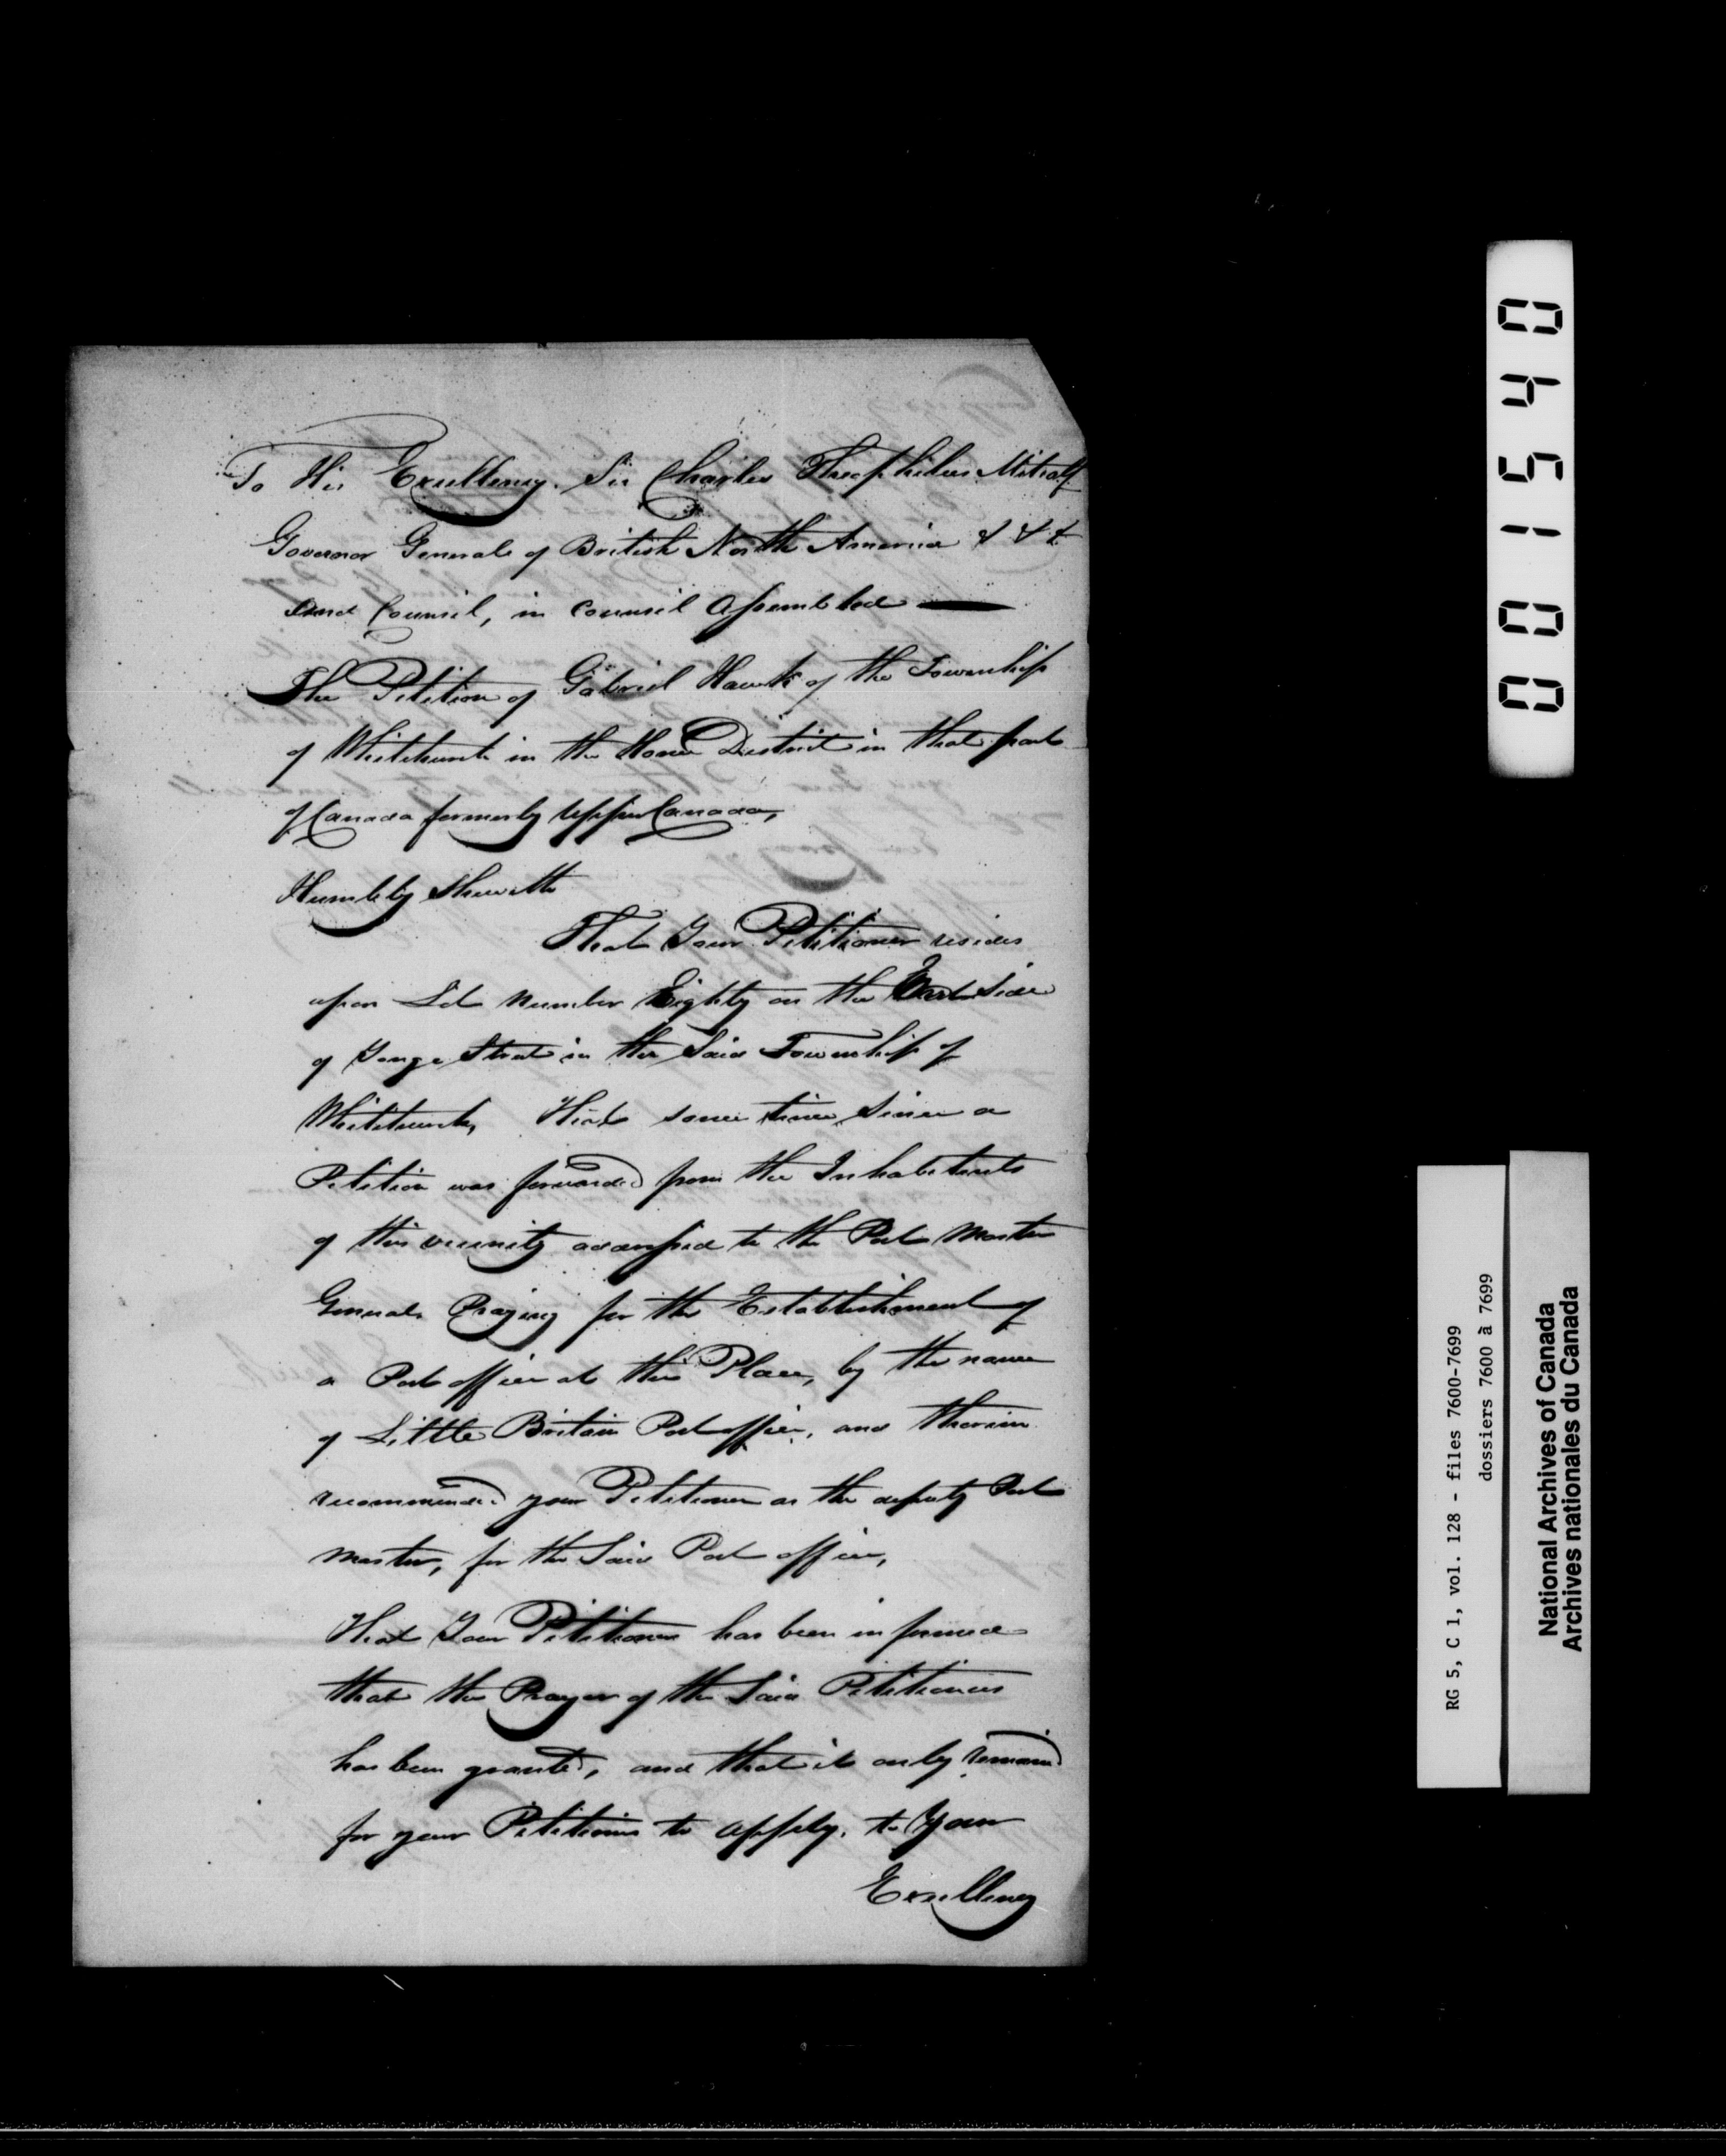 To His Excellency. Sir Charles Theophilus Metcalf
Governor General of British North America & & &
and Council, in Council Assembled —
The Petition of Gabriel Hawk of the Township
of Whitchurch in the Home District in that part
of Canada formerly Upper Canada,
Humbly Sheweth
That Your Petitioner resides
upon Lot Number Eighty on the Side
of Yonge Street in the Said Township of
Whitchurch, That some time since a
Petition was forwarded from the Inhabitants
of this vicinity addressed to the Post Master
General, Praying for the Establishment of
a Post office at this Place, by the name
of Little Britain Post office, and therein
recommended your Petitioner as the deputy Post
Master, for the Said Post office,
That Your Petitioner has been informed
that the Prayer of the Said Petitioners
has been granted, and that it only remains
for your Petitioner to apply. to Your
Excellency
001540
RG 5, C 1, vol. 128 - files 7600-7699
dossiers 7600 à 7699
National Archives of Canada
Archives nationales du Canada